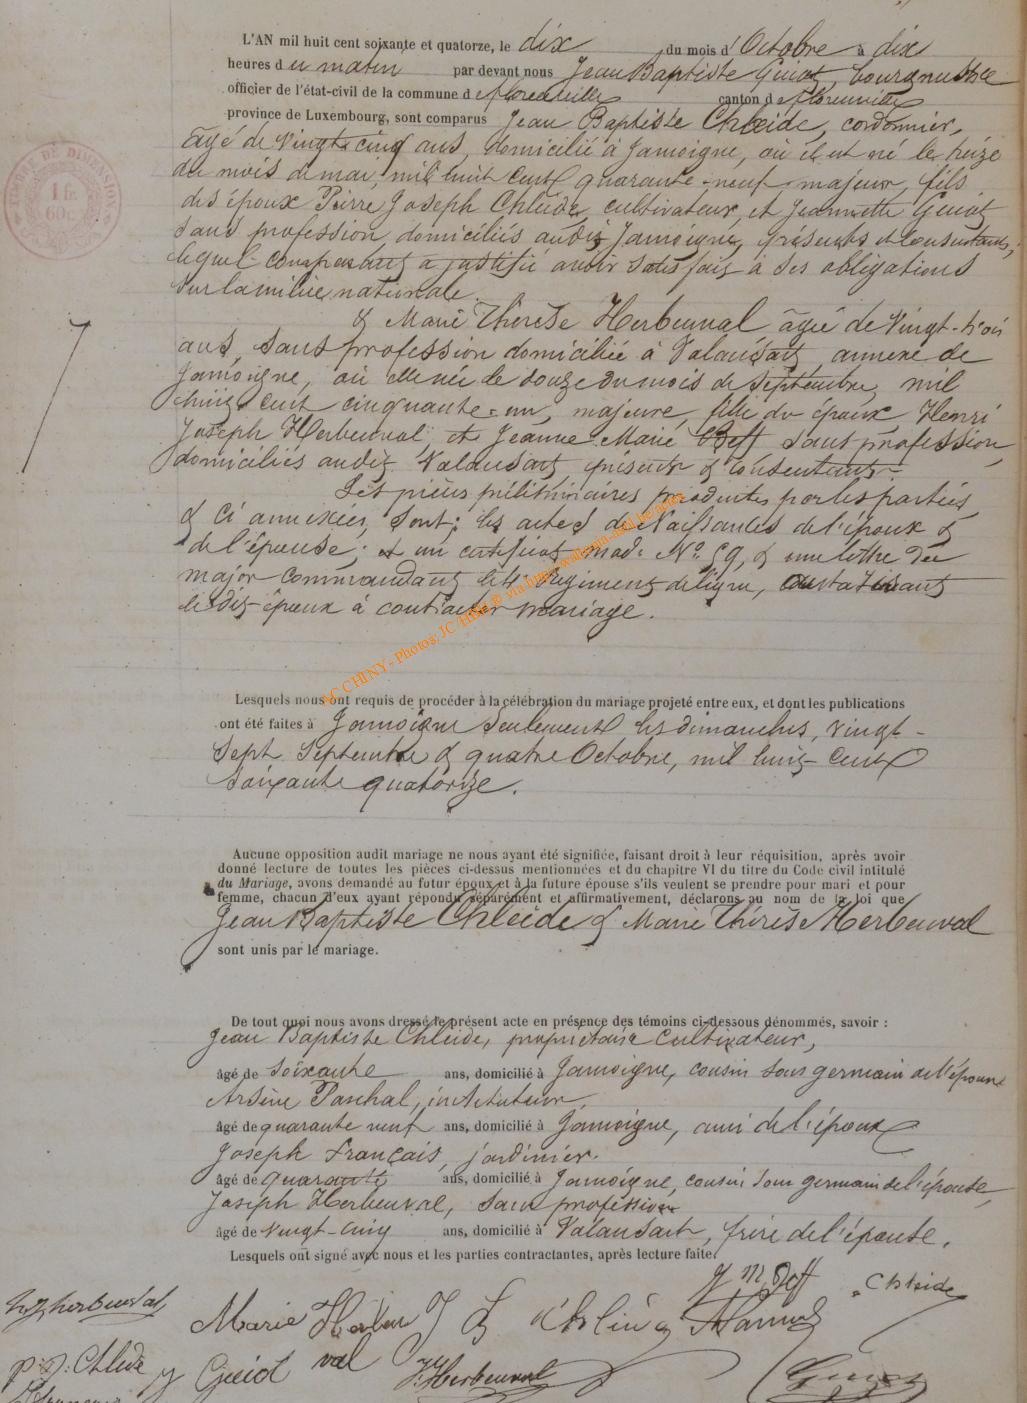 L'AN mil huit cent soixante et quatorze, le dix du mois d'Octobre à dix
heures du matin par devant nous Jean Baptiste Guiot, bourgmestre
officier de l'état-civil de la commune de canton de
province de Luxembourg, sont comparus Jean Baptiste Chleide, cordonnier,
âgé de Vingt cinq ans, domicilié à Jamoigne, où il est né le treize
du mois de mai, mil huit cent quarante-neuf, majeur, fils
des époux Pierre Joseph Chleide, cultivateur, et Jeannette Guiot,
sans profession, domiciliés audit Jamoigne, présents et consentants,
lequel comparant a justifié avoir satisfait à ses obligations
sur la milice nationale.
& Marie Thérèse Herbeuval âgée de Vingt-trois
ans, sans profession domiciliée à Valansart, annexe de
Jamoigne, où elle née le douze du mois de Septembre, mil
huit cent cinquante-un, majeure, fille des époux Henri
Joseph Herbeuval, et Jeanne Marie sans profession,
domiciliés audit Valansart, présents & consentants.
Les pièces préliminaires produites par les parties,
& ci annexées, sont: les actes de Naissances de l'époux &
de l'épouse; et un certificat mod. N° & une lettre du
major commandant le régiment de ligne,
ledit époux à contracter mariage.
AC CHINY - Photos: JC HIBLE via
Lesquels nous ont requis de procéder à la célébration du mariage projeté entre eux, et dont les publications
ont été faites à Jamoigne seulement les dimanches, vingt-
sept Septembre & quatre Octobre, mil huit cent
soixante quatorze.
Aucune opposition audit mariage ne nous ayant été signifiée, faisant droit à leur réquisition, après avoir
donné lecture de toutes les pièces ci-dessus mentionnées et du chapitre VI du titre du Code civil intitulé
du Mariage, avons demandé au futur époux et à la future épouse s'ils veulent se prendre pour mari et pour
femme, chacun d'eux ayant répondu séparément et affirmativement, déclarons au nom de la loi que
Jean Baptiste Chleide & Marie Thérèse Herbeuval
sont unis par le mariage.
De tout quoi nous avons dressé le présent acte en présence des témoins ci-dessous dénommés, savoir :
Jean Baptiste Chleide, propriétaire cultivateur,
âgé de soixante ans, domicilié à Jamoigne, cousin sous germain de l'époux
Arsène Paschal, instituteur,
âgé de quarante neuf ans, domicilié à Jamoigne, ami de l'époux
Joseph Français, jardinier.
âgé de quarante ans, domicilié à Jamoigne, cousin sous germain de l'épouse,
Joseph Herbeuval, sans profession
âgé de vingt-cinq ans, domicilié à Valansart, frère de l'épouse.
Lesquels ont signé avec nous et les parties contractantes, après lecture faite.
Chleide
h j herbeuval
Marie Herbeu
val
p. j. Chleide
Guiot
J. Herbeuval